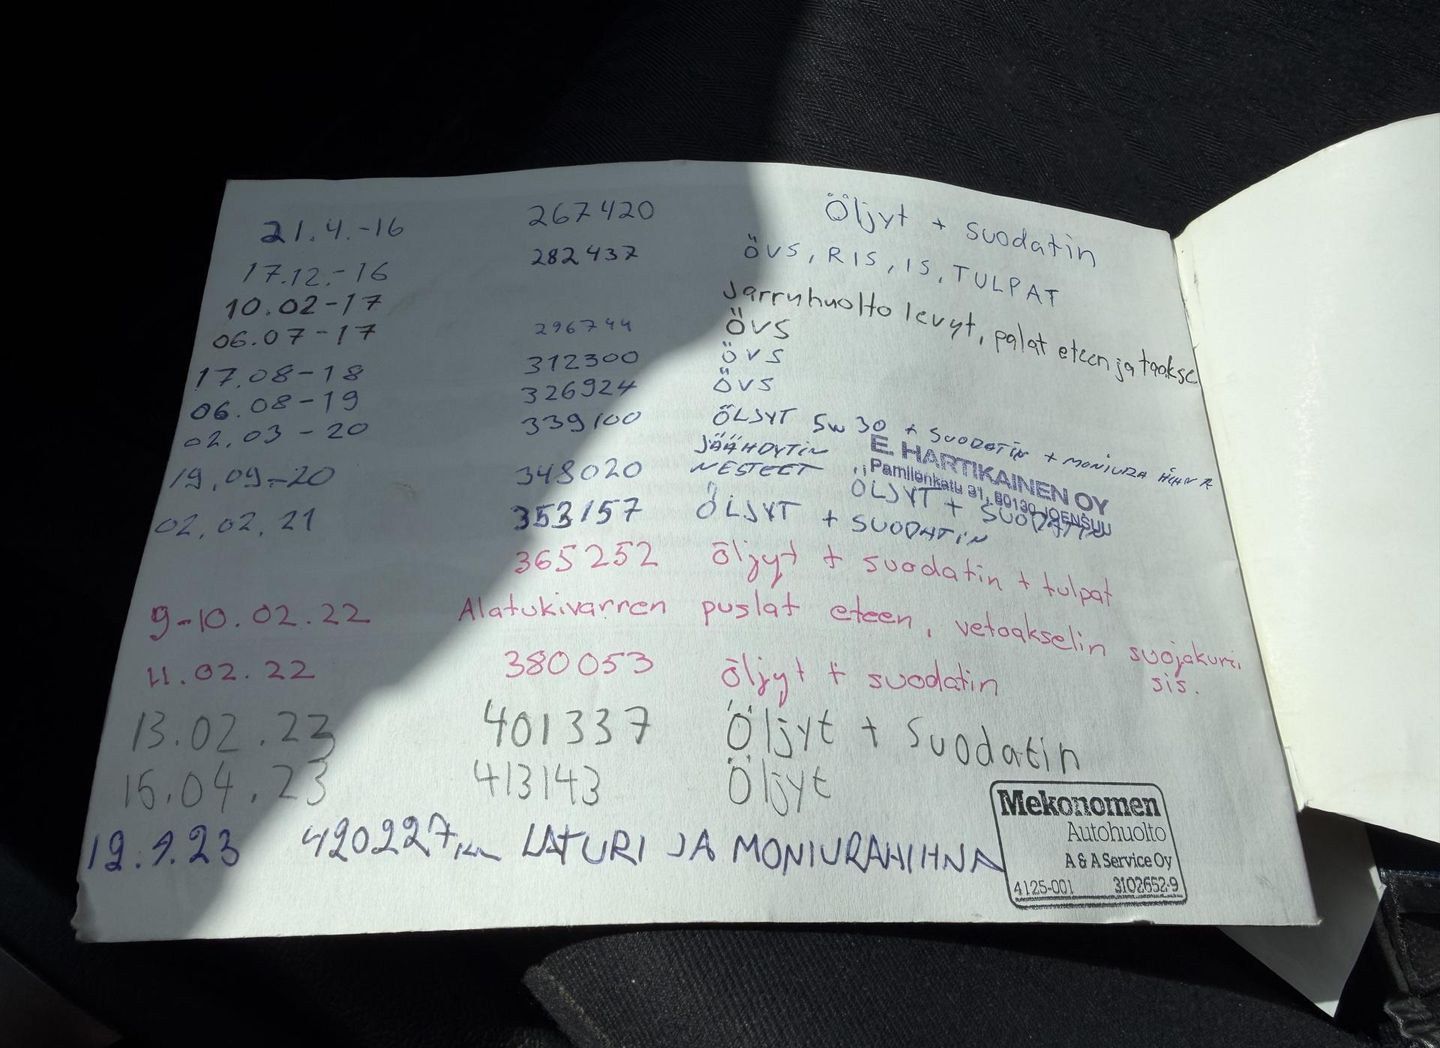 21.4.-16 267420 Öljyt + suodatin
17.12.-16 282437 ÖVS, RIS, IS, TULPAT
10.02-17 Jarruhuolto levyt, palat eteen ja taakse
06.07-17 296744 ÖVS
17.08-18 312300 ÖVS
06.08-19 326924 ÖVS
02.03-20 339100 ÖLJYT 5W30 + SUODATIN + MONIURA HIHNA
JÄÄHDYTIN
NESTEET
E. HARTIKAINEN OY
Pamilonkatu 31, 80130 JOENSUU
19.09-20 348020 ÖLJYT + SUODATIN
02.02.21 353157 ÖLJYT + SUODATIN
365252 öljyt + suodatin + tulpat
9-10.02.22 Alatukivarren puslat eteen, vetoakselin suojakumi
sis.
11.02.22 380053 öljyt + suodatin
13.02.23 401337 Öljyt + Suodatin
15.04.23 413143 Öljyt
12.9.23 420227km LATURI JA MONIURAHIHNA
Mekonomen
Autohuolto
A & A Service Oy
4125-001 3102652-9